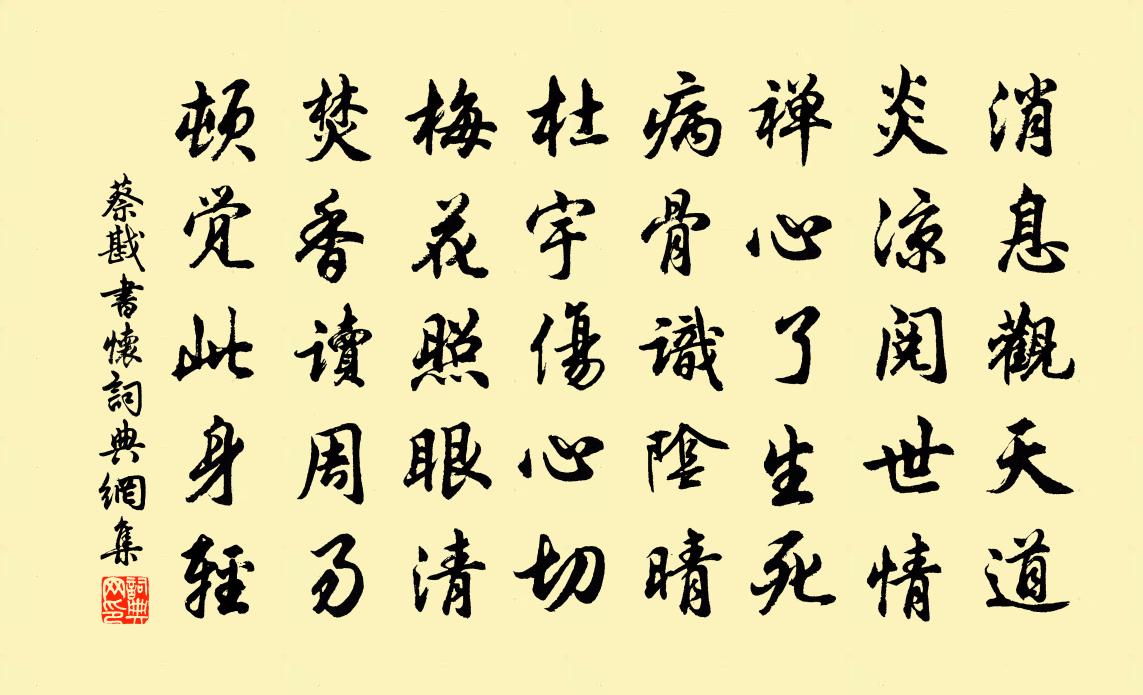 消息觀天道
炎涼閱世情
禅心了生死
病骨識陰晴
杜宇傷心切
梅花照眼清
焚香讀周易
頓觉此身輕
蔡戡書懷詞典網集
詞典网印